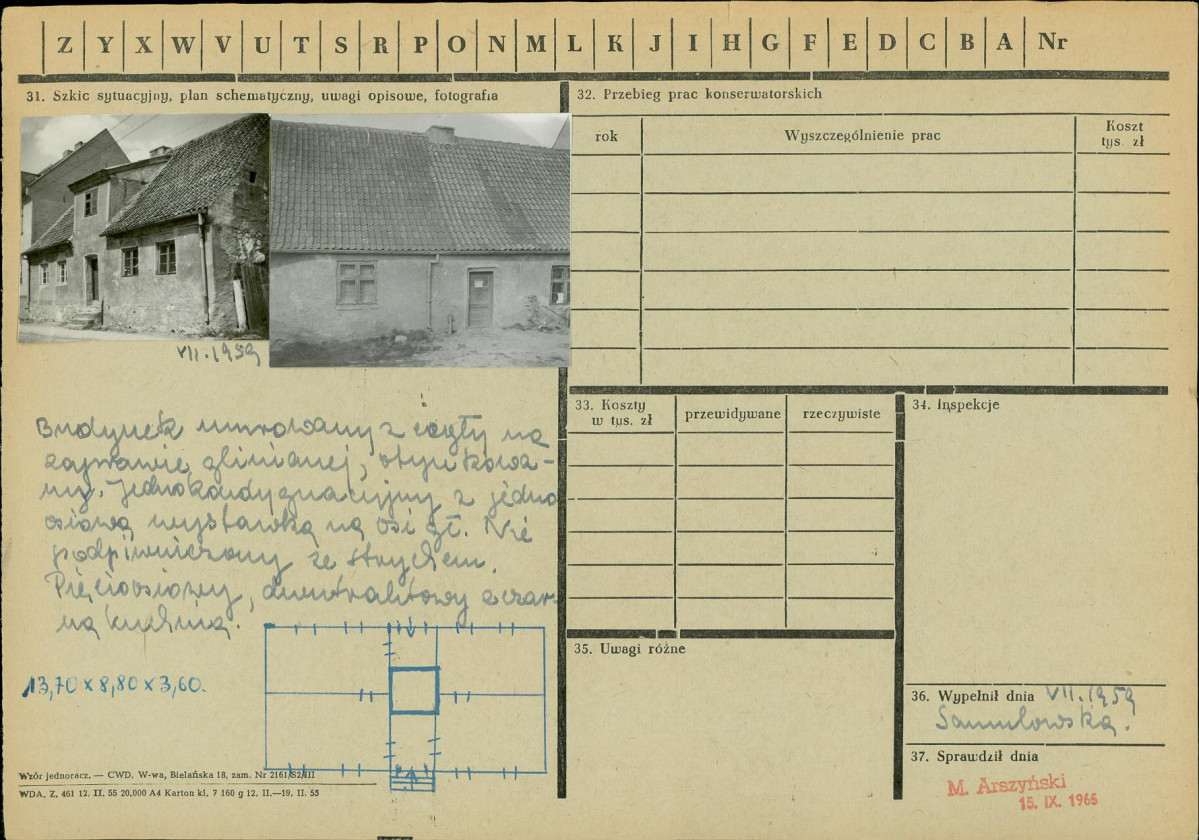 Z Y X W V U T S R P O N M L K J I H G F E D C B A Nr
31. Szkic sytuacyjny, plan schematyczny, uwagi opisowe, fotografia
VII.1959
Budynek murowany z cegły na
zaprawie glinianej, otynkowa-
ny. Jednokondygnacyjny z jedno
osiową wystawką na osi gł. Nie
podpiwniczony ze strychem.
Pięcioosiowy, dwutraktowy z czar-
ną kuchnią.
13,70 x 8,80 x 3,60.
Wzór jednoracz. — CWD, W-wa, Bielańska 18, zam. Nr 2161/S2/III
WDA. Z. 461 12. II. 55 20.000 A4 Karton kl. 7 160 g 12. II.—19. II. 55
32. Przebieg prac konserwatorskich
rok
Wyszczególnienie prac
Koszt
tys. zł
33. Koszty
w tys. zł
przewidywane
rzeczywiste
34. Inspekcje
35. Uwagi różne
36. Wypełnił dnia VII.1959
Samulowska.
37. Sprawdził dnia
M. Arszyński
15. IX. 1965